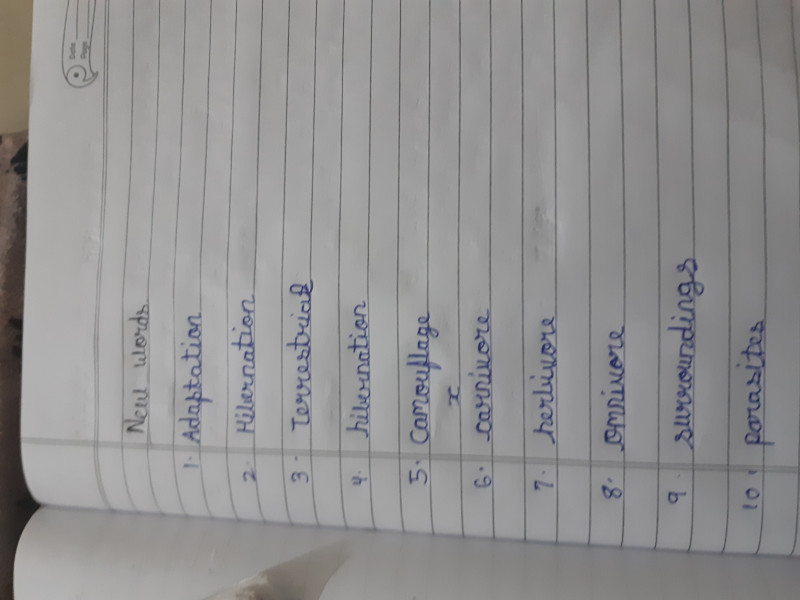 Date
Page
New words
1. Adaptation
2. Hibernation
3. Terrestrial
4. hibernation
5. Camouflage
x
6. carnivore
7. herbivore
8. omnivore
9. surroundings
10. parasites